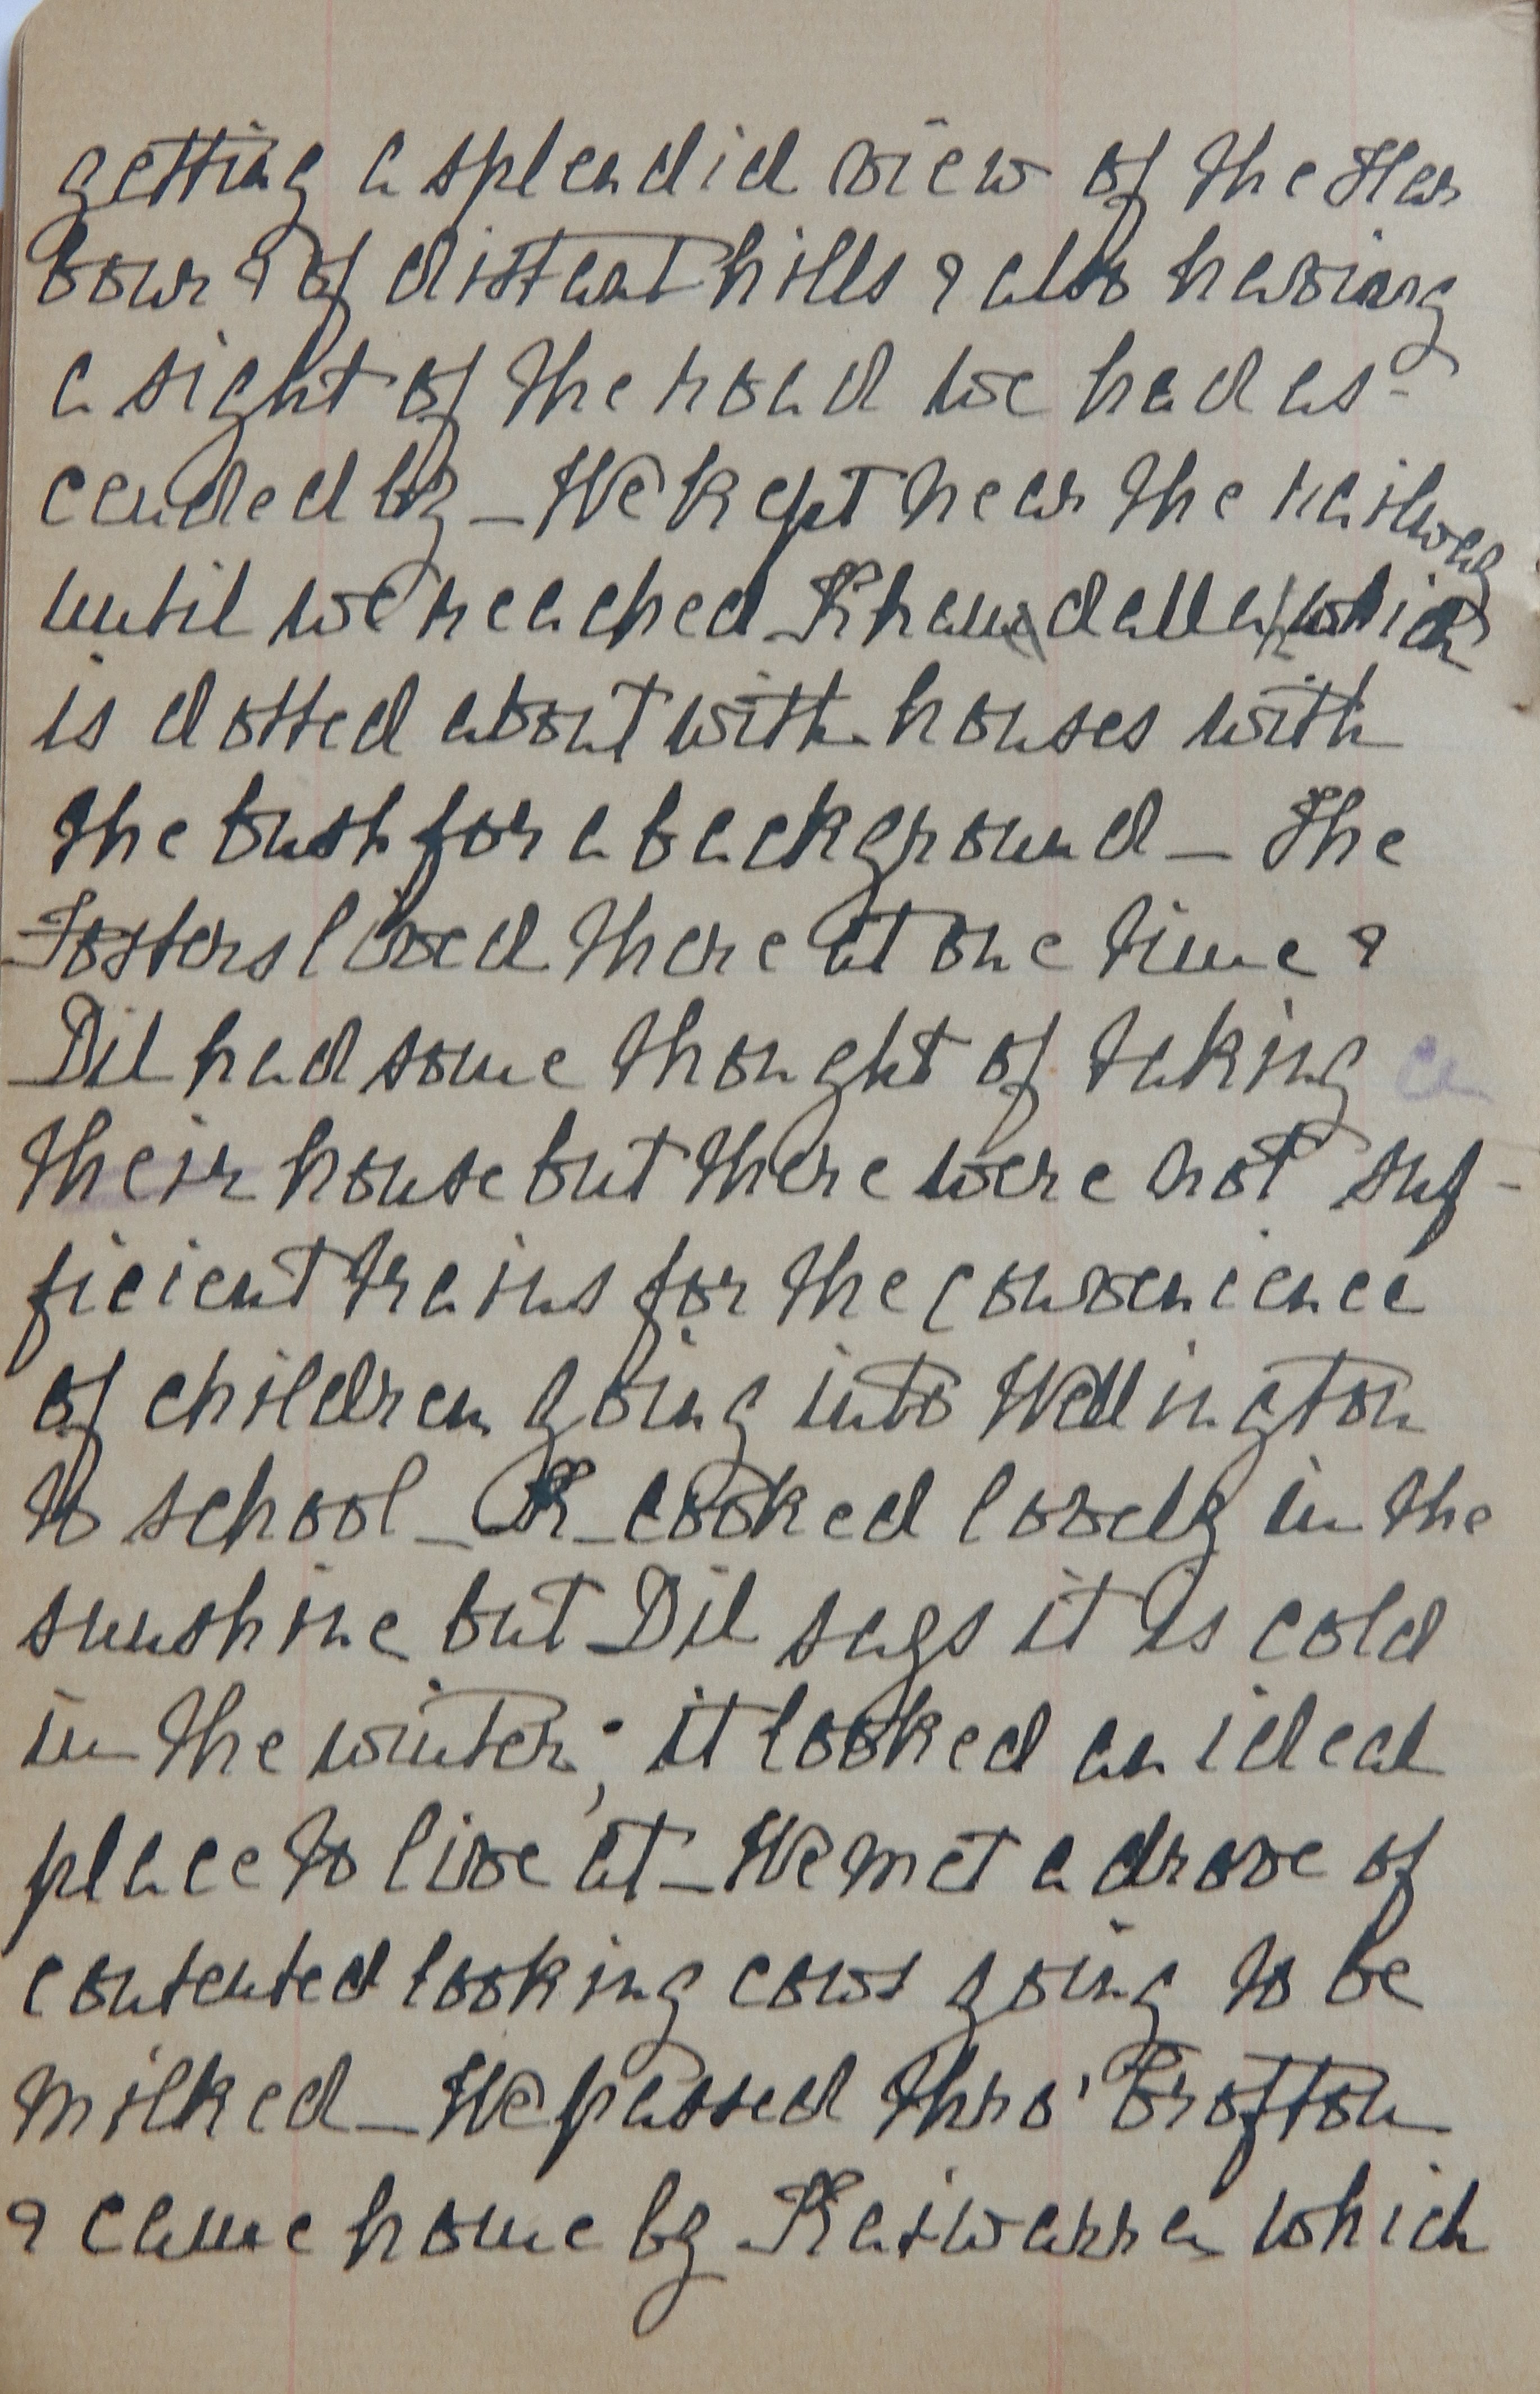 getting a splendid view of the Har
bour & of distant hills & also having
a sight of the road we had as-
cended by _ We kept near the railway
until we reached Khandalla which
is dotted about with houses with
the bush for a background _ The
Fosters lived there at one time &
Dil had some thought of taking
their house but there were not suf-
ficient trains for the convenience
of children going into Wellington
to school _ K _ looked lovely in the
sunshine but Dil says it is cold
in the winter; it looked an ideal
place to live at _ We met a drove of
contented looking cows going to be
milked _ We passed thro' Crofton
& came home by Kaiwarra which